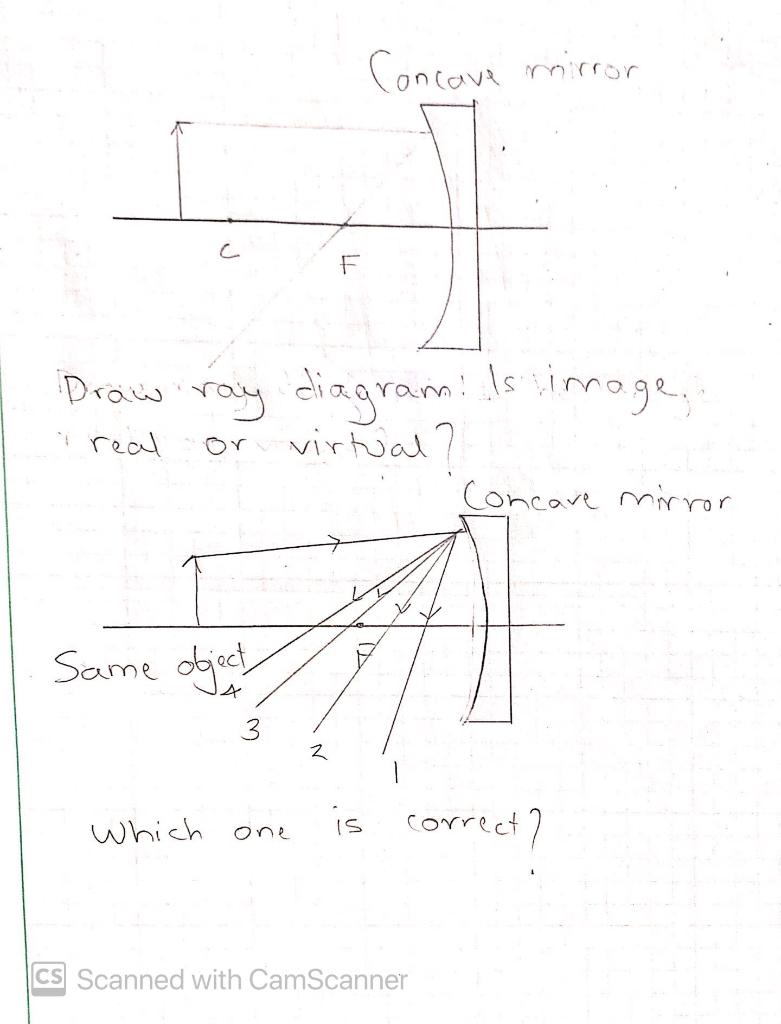 Concave mirror
C
F
Draw ray diagram! Is image,
real or virtual?
Concave mirror
Same object
F
4
3
2
1
Which one is correct?
CS Scanned with CamScanner